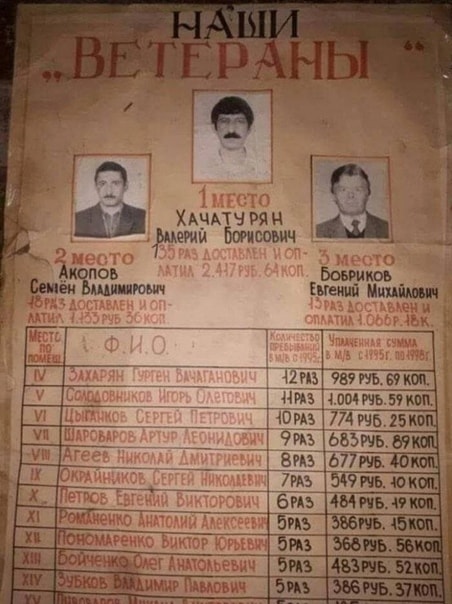 НАШИ
„ВЕТЕРАНЫ“
1 МЕСТО
ХАЧАТУРЯН
Валерий Борисович
35 РАЗ ДОСТАВЛЕН И ОП-
ЛАТИЛ 2.417 РУБ. 64 КОП.
2 место
АКОПОВ
Семён Владимирович
18 РАЗ ДОСТАВЛЕН И ОП-
ЛАТИЛ 1.133 РУБ 36 КОП.
3 место
БОБРИКОВ
Евгений Михайлович
13 РАЗ ДОСТАВЛЕН И
ОПЛАТИЛ 1.066 Р. 18 К.
МЕСТО ПО ПОМЕЩ. Ф.И.О. КОЛИЧЕСТВО ПРЕБЫВАНИЙ В М/В С 1995г. УПЛАЧЕННАЯ СУММА В М/В С 1995г. ПО 1998г.
IV ЗАХАРЯН ГУРГЕН ВАЧАГАНОВИЧ 12 РАЗ 989 РУБ. 69 КОП.
V СОЛОДОВНИКОВ ИГОРЬ ОЛЕГОВИЧ 11 РАЗ 1.004 РУБ. 59 КОП.
VI ЦЫГАНКОВ СЕРГЕЙ ПЕТРОВИЧ 10 РАЗ 774 РУБ. 25 КОП.
VII ШАРОВАРОВ АРТУР ЛЕОНИДОВИЧ 9 РАЗ 683 РУБ. 89 КОП.
VIII АГЕЕВ НИКОЛАЙ ДМИТРИЕВИЧ 8 РАЗ 677 РУБ. 40 КОП.
IX ОКРАЙНИКОВ СЕРГЕЙ НИКОЛАЕВИЧ 7 РАЗ 549 РУБ. 10 КОП.
X ПЕТРОВ ЕВГЕНИЙ ВИКТОРОВИЧ 6 РАЗ 484 РУБ. 19 КОП.
XI РОМАНЕНКО АНАТОЛИЙ АЛЕКСЕЕВИЧ 5 РАЗ 386 РУБ. 15 КОП.
XII ПОНОМАРЕНКО ВИКТОР ЮРЬЕВИЧ 5 РАЗ 368 РУБ. 56 КОП
XIII БОЙЧЕНКО ОЛЕГ АНАТОЛЬЕВИЧ 5 РАЗ 483 РУБ. 52 КОП.
XIV ЗУБКОВ ВЛАДИМИР ПАВЛОВИЧ 5 РАЗ 386 РУБ. 37 КОП.
XV ПИВОВАРОВ